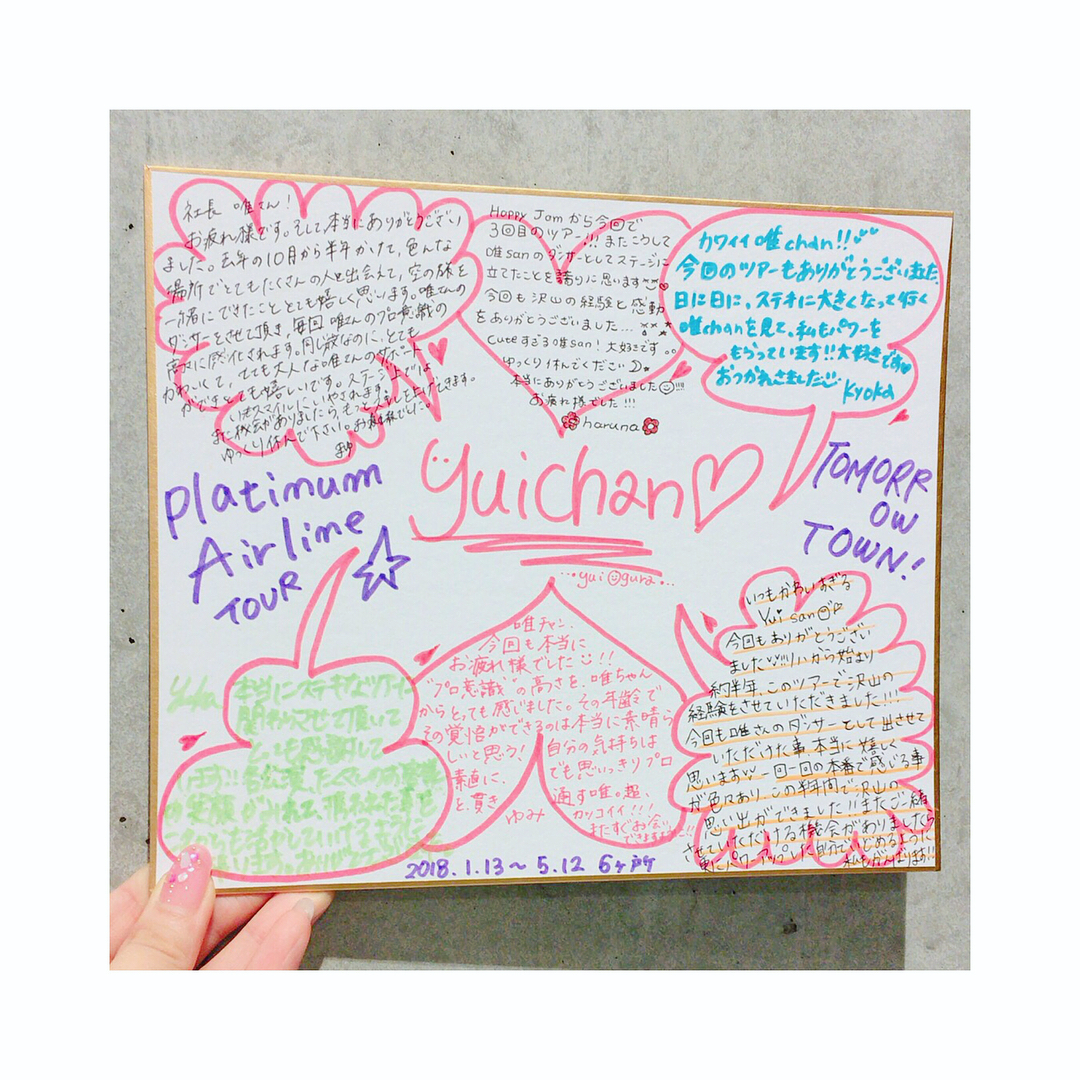 社長 唯さん!
お疲れ様です。そして本当にありがとうござい
ました。去年の10月から半年かけて、色んな
場所でとてもたくさんの人と出会えて、空の旅を
一緒にできたこととても嬉しく思います。唯さんの
ダンサーをさせて頂き、毎回唯さんのプロ意識の
高さに感化されます。同じ歳なのに、とても
かわいくて、とても大人な唯さんのサポート
ができとても嬉しいです。ステージ上では
いつもスマイルにいやされます。
また機会がありましたら、もっと
ゆっくり休んで下さい。お疲れ様でした。
まゆ
Happy Jamから今回で
3回目のツアー!!! またこうして
唯sanのダンサーとしてステージに
立てたことを誇りに思います
今回も沢山の経験と感動
をありがとうございました...
cuteすぎる唯san! 大好きです。。
ゆっくり休んでください
本当にありがとうございました!!!!
お疲れ様でした!!!
haruna
カワイイ唯chan!!
今回のツアーもありがとうございました
日に日に、ステキに大きくなって行く
唯chanを見て、私もパワーを
もらっています!!大好きです♡
おつかれさました
kyoka
Platinum
Airline
TOUR ☆
yuichan♡
...yui ogura...
TOMORR
OW
TOWN!
本当にステキなツアーに
関わらさせて頂いて
とっても感謝して
ます!!
唯チャン、
今回も本当に
お疲れ様でした!!
"プロ意識"の高さを、唯ちゃん
からとっても感じました。その年齢で
その覚悟ができるのは本当に素晴ら
しいと思う! 自分の気持ちは
素直に、でも思いっきりプロ
と、貫き通す唯。超、
カッコイイ!!!
ゆみ またすぐお会い
できますように!!
いつもかわいすぎる
Yui san
今回もありがとうござい
ました!!リハから始まり
約半年、このツアーで沢山の
経験をさせていただきました!!!
今回も唯さんのダンサーとして出させて
いただけた事本当に嬉しく
思います 一回一回の本番で感じる事
が色々あり、この半年間で沢山の
思い出ができました!!またご一緒
させていただける機会がありましたら
更にパワーアップした自分で
私もがんばります!!
2018.1.13〜5.12 6ヶ所